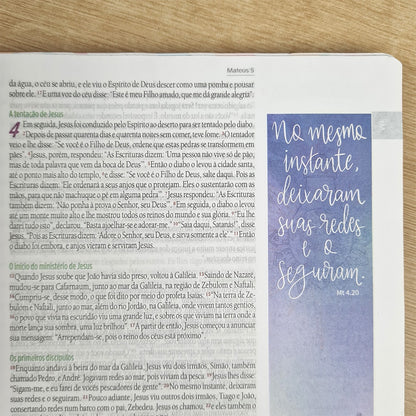 Mateus 5
da água, o céu se abriu, e ele viu o Espírito de Deus descer como uma pomba e pousar
sobre ele. 17 E uma voz do céu disse: "Este é meu Filho amado, que me dá grande alegria".
A tentação de Jesus
4 Em seguida, Jesus foi conduzido pelo Espírito ao deserto para ser tentado pelo diabo.
2 Depois de passar quarenta dias e quarenta noites sem comer, teve fome. 3 O tentador
veio e lhe disse: "Se você é o Filho de Deus, ordene que estas pedras se transformem em
pães". 4 Jesus, porém, respondeu: "As Escrituras dizem: Uma pessoa não vive só de pão,
mas de toda palavra que vem da boca de Deus". 5 Então o diabo o levou à cidade santa,
até o ponto mais alto do templo, 6 e disse: "Se você é o Filho de Deus, salte daqui. Pois as
Escrituras dizem: 'Ele ordenará a seus anjos que o protejam. Eles o sustentarão com as
mãos, para que não machuque o pé em alguma pedra'". 7 Jesus respondeu: "As Escrituras
também dizem: 'Não ponha à prova o Senhor, seu Deus'". 8 Em seguida, o diabo o levou
até um monte muito alto e lhe mostrou todos os reinos do mundo e sua glória. 9 "Eu lhe
darei tudo isto", declarou. "Basta ajoelhar-se e adorar-me." 10 "Saia daqui, Satanás!", disse
Jesus. "Pois as Escrituras dizem: 'Adore o Senhor, seu Deus, e sirva somente a ele'." 11 Então
o diabo foi embora, e anjos vieram e serviram Jesus.
O início do ministério de Jesus
12 Quando Jesus soube que João havia sido preso, voltou à Galileia. 13 Saindo de Nazaré,
mudou-se para Cafarnaum, junto ao mar da Galileia, na região de Zebulom e Naftali.
14 Cumpriu-se, desse modo, o que foi dito por meio do profeta Isaías: 15 "Na terra de Ze-
bulom e Naftali, junto ao mar, além do rio Jordão, na Galileia, onde vivem tantos gentios,
16 o povo que vivia na escuridão viu uma grande luz, e sobre os que viviam na terra onde a
morte lança sua sombra, uma luz brilhou". 17 A partir de então, Jesus começou a anunciar
sua mensagem: "Arrependam-se, pois o reino dos céus está próximo".
Os primeiros discípulos
18 Enquanto andava à beira do mar da Galileia, Jesus viu dois irmãos, Simão, também
chamado Pedro, e André. Jogavam redes ao mar, pois viviam da pesca. 19 Jesus lhes disse:
"Sigam-me, e eu farei de vocês pescadores de gente". 20 No mesmo instante, deixaram
suas redes e o seguiram. 21 Pouco adiante, Jesus viu outros dois irmãos, Tiago e João,
consertando redes num barco com o pai, Zebedeu. Jesus os chamou, 22 e eles também o
No mesmo
instante,
deixaram
suas redes
e o
seguiram.
Mt 4.20